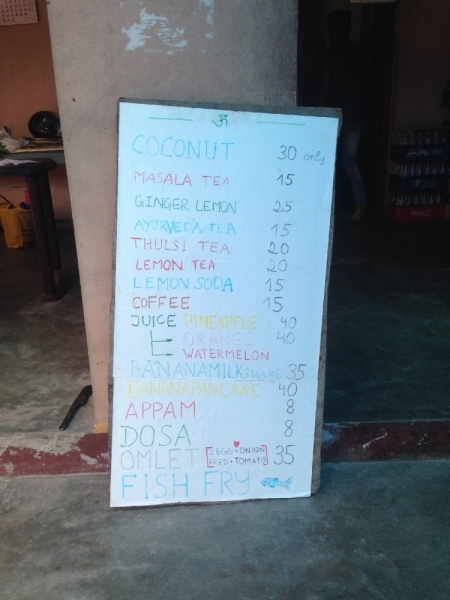 ॐ
COCONUT 30 only
MASALA TEA 15
GINGER LEMON 25
AYURVEDA TEA 15
THULSI TEA 20
LEMON TEA 20
LEMON SODA 15
COFFEE 15
JUICE PINEAPPLE : 40
ORANGE 40
WATERMELON
BANANAMILKSHAKE 35
BANANAPANCAKE 40
APPAM 8
DOSA 8
OMLET 2EGG + ONION BRED + TOMATO 35
FISH FRY